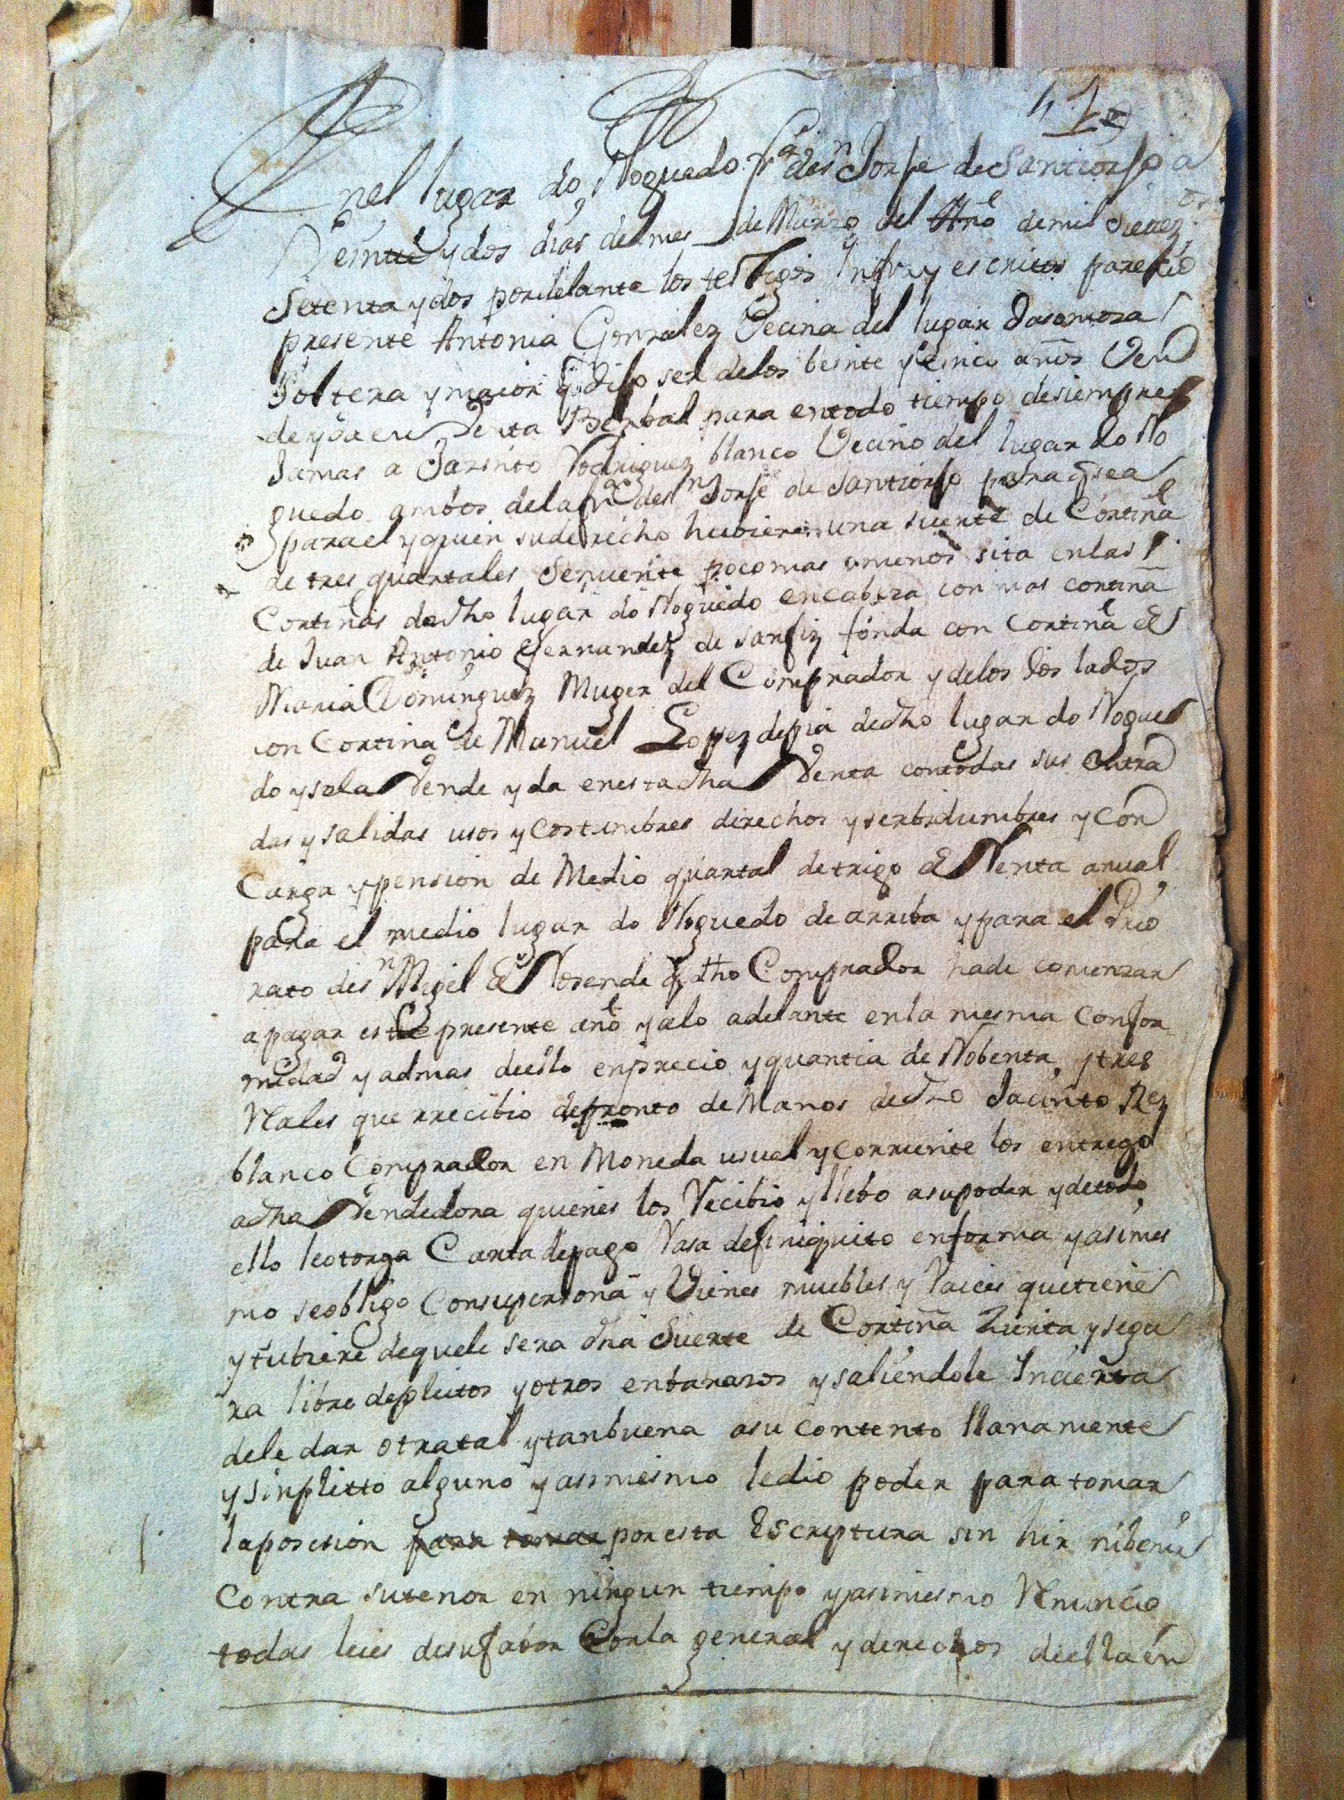 En el lugar do Noguedo fra de sn Jorje de Santiorjo a
Beinte y dos dias del mes de Marzo del Año de mil Setezos
Setenta y dos por delante los testigos Infra y escritos parecio
presente Antonia Gonzalez Vecina del lugar Dasomoza
Soltera y maior q dijo ser de los beinte y cinco años Ven
de y da en Venta Berbal para en todo tiempo de siempre
Jamas a Jazinto Rodriguez blanco Vecino del lugar do No
guedo ambos de la fra de sn Jorje de Santiorjo para q sea
para el y quien su derecho hubiere una suerte de Cortiña
de tres quartales Semiente poco mas o menos sita en las
Cortiñas de dho lugar do Noguedo encabeza con mas cortiña
de Juan Antonio Fernandez de sanfiz fonda con Cortiña de
Maria Dominguez Muger del Comprador y de los dos lados
con Cortiña de Manuel Lopez de pia de dho lugar do Nogue
do y se la Vende y da en esta dha Venta con todas sus entra
das y salidas usos y costumbres direchos y serbidumbres y con
Carga y pension de Medio quartal de trigo de Renta anual
para el medio lugar do Noguedo de arriba y para el Prio
rato de sn Migel de Rosende q dho Comprador ha de comenzar
a pagar este presente año y alo adelante en la mesma Confor
midad y admas de ello en precio y quantia de Nobenta y tres
Rales que rrecibio de pronto de Manos de dho Jacinto Rez
blanco Comprador en Moneda usual y corriente los entrego
a dha Vendedora quienes los Recibio y llebo a su poder y de todo
ello le otorga Carta de pago Rasa de finiquito en forma y asimes
mo se obligo Con su persona y Vienes muebles y Raices que tiene
y tubiere de que le sera dha Suerte de Cortiña Zierta y segu
ra libre de pleitos y otros enbarazos y saliendole Incierta
de le dar otra tal y tan buena a su contento llanamente
y sin plitto alguno y asimesmo le dio poder para tomar
la posesion para tomar por esta Escriptura sin hir ni benir
Contra su tenor en ningun tiempo y asimesmo Rnuncio
todas leies de su fabor Con la general y derechos de ella en